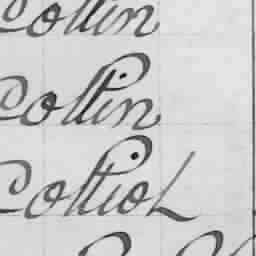 Collin
Collin
Colliol